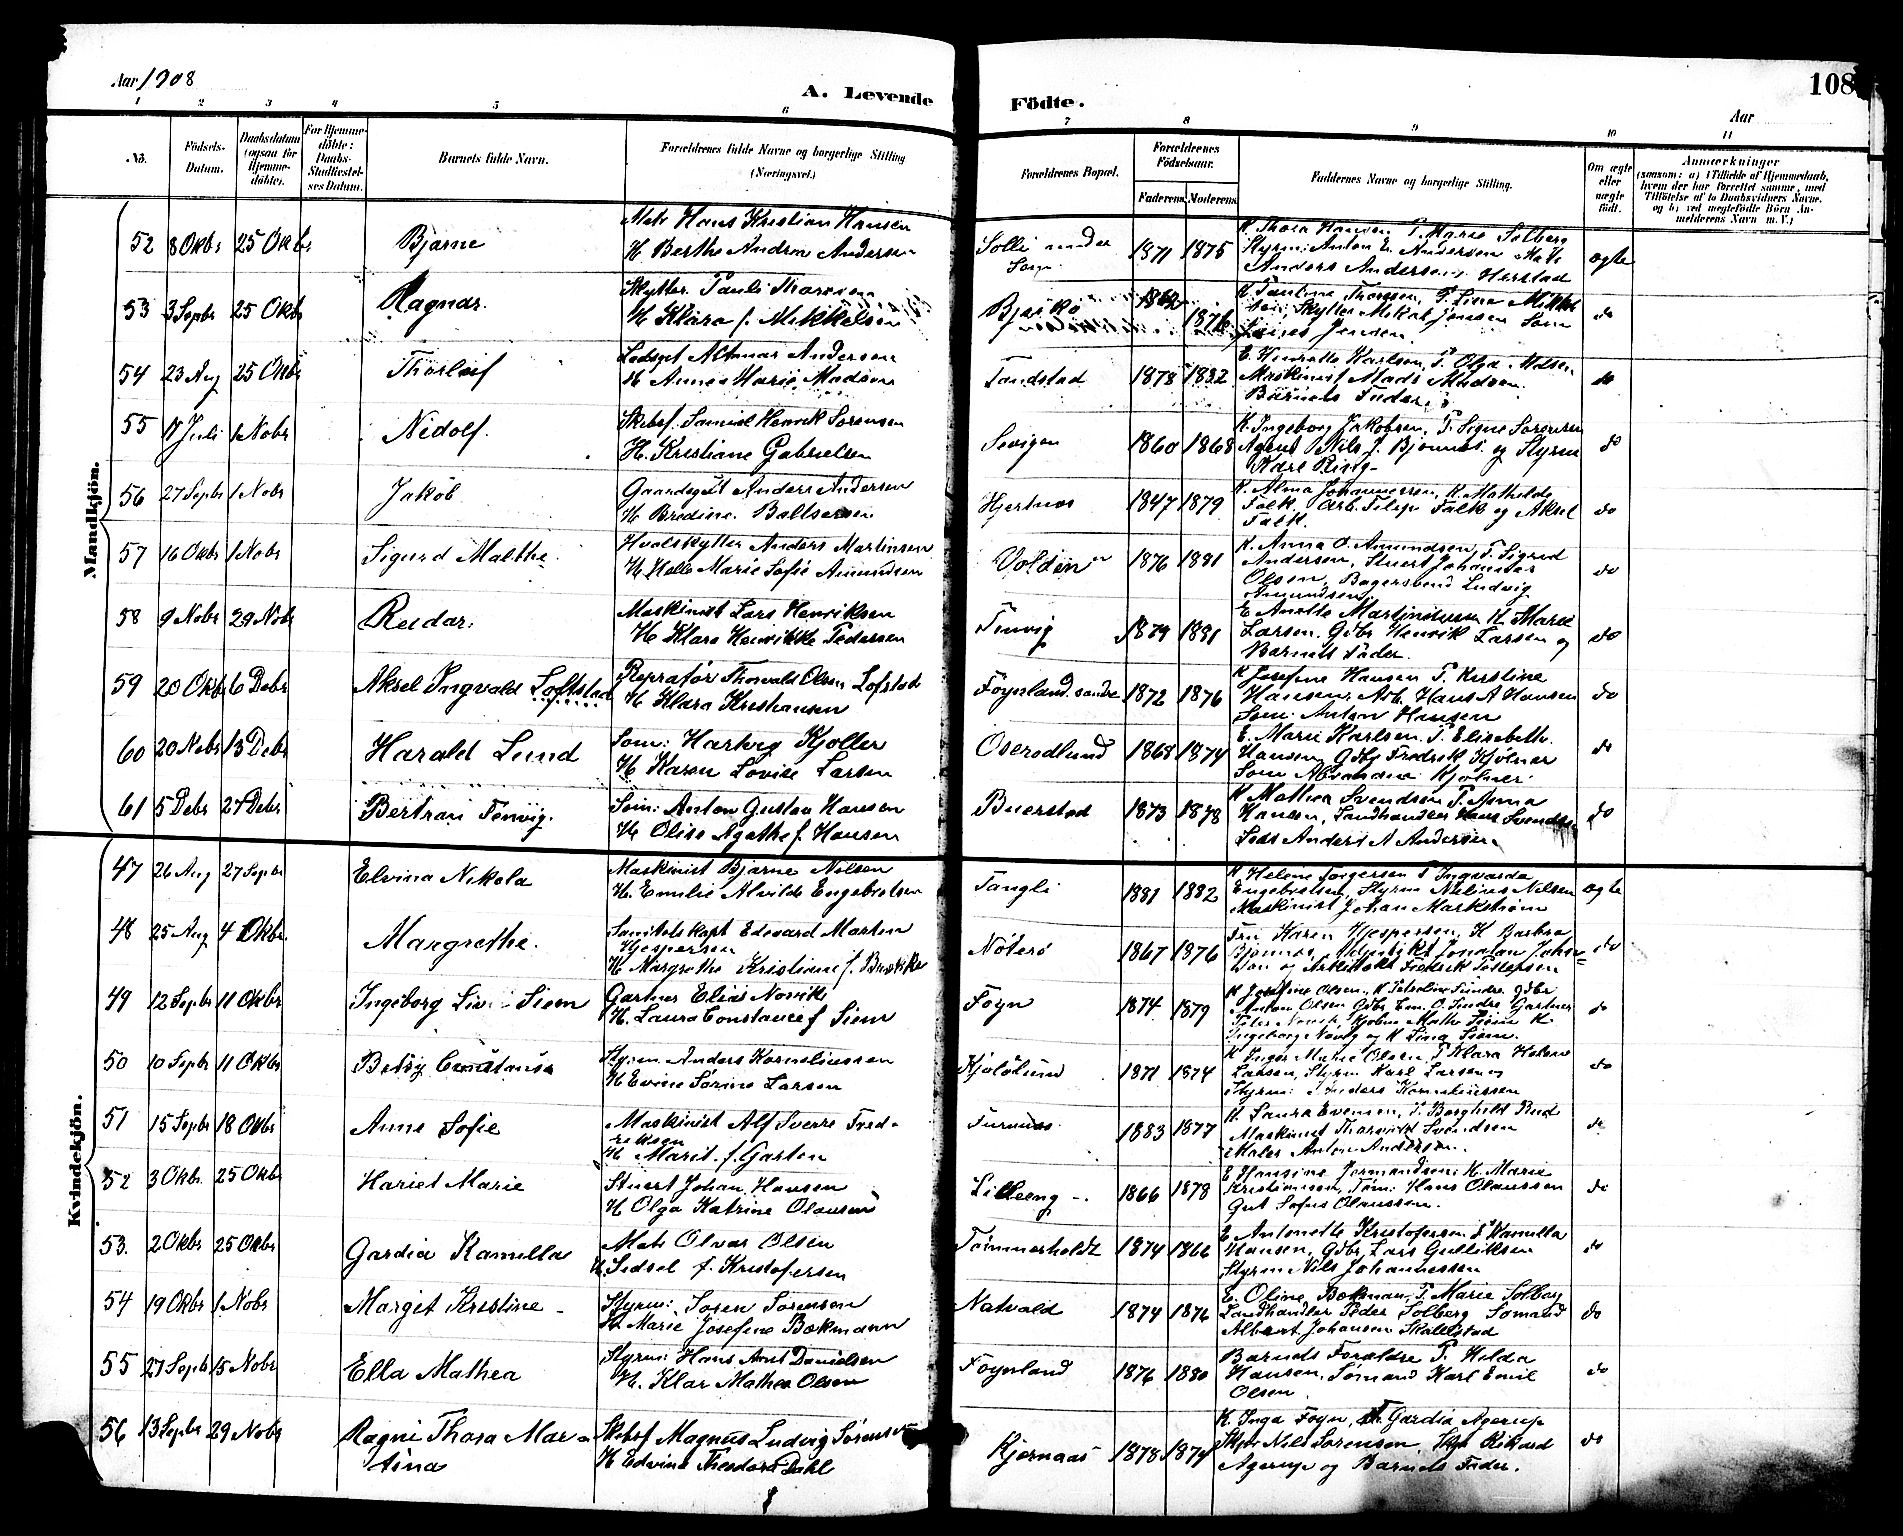 Aar 1908
A. Levende
Födte.
108
Aar
1 2 3 4 5 6 7 8 9 10 11
No.
Födsels-Datum.
Daabsdatum (ogsaa for Hjemme-döbte).
For Hjemme-döbte: Daabs-Stadfæstelses Datum.
Barnets fulde Navn.
Forældrenes fulde Navne og borgerlige Stilling (Næringsvei.)
Forældrenes Bopæl.
Forældrenes Födselsaar.
Faderens Moderens
Faddernes Navne og borgerlige Stilling.
Om ægte eller uægte født.
Anmærkninger
(saasom: a) i Tilfælde af Hjemmedaab, hvem der har forrettet samme, med Tilföielse af to Daabsvidners Navne, og b) ved uegtefödte Börn Anmelderens Navn m. V.)
Mandkjön.
52 8 Okbr 25 Okbr Bjarne
Hans Kristian Hansen
H Berthe Andrea Andersen
Solli søndre
1871 1875
K Thora Hansen P. Marie Solberg
Styrm: Anton E. Andersen
Anders Andersen Herstad
ægte
53 3 Septbr 25 Okbr Ragnar
Skytter Pauli Thoresen
H Klara f. Mikkelsen
Bjerkø
1876
K Pauline Thoresen, P. Lina Mikkel
sen, Skytter Mikal Jensen
Jensen
do
54 23 Aug 25 Okbr Thorleif
Ladsget Altmar Andersen
H Anna Marie Madsen
Tandstad
1878 1882
E. Henrette Karlsen, P. Olga Madsen
Maskinist Mads Madsen
Barnets Fader
do
55 17 Juli 1 Nobr Nidolf.
Skibsf. Samuel Henrik Sørensen
H. Kristiane Gabrielsen
1860 1868
K. Ingeborg Jakobsen, P. Signe Sørensen
Agent Nils J. Bjønnes og Styrm
Karl Ring
do
56 27 Septbr 1 Nobr Jakob
Gaardsget Anders Andersen
H Bredine Baltsersen
Hjertnes
1847 1879
K. Alma Johannessen, K. Mathilde
Falk. Arb. Filip Falk og Aksel
Falk.
do
57 16 Okbr 1 Nobr Sigurd Malthe
Hvalskytter Anders Martinsen
H Helle Marie Sofie Amundsen
Volden
1876 1881
K. Anna O. Amundsen, P. Sigrid
Andersen, Stuert Johannes
Olsen, Bagersvend Ludvig
Amundsen
do
58 9 Nobr 29 Nobr Reidar
Maskinist Lars Henriksen
H Klara Henrikke Pedersen
Tenvig
1879 1881
E Anette Martiniusen K Marie
Larsen. Gdbr Henrik Larsen og
Barnets Fader.
do
59 20 Okbr 6 Debr Aksel Ingvald Loftstad
Repratør Thorvald Olsen Lofstad
H Klara Kristiansen
Føynland søndre
1872 1876
K Josefine Hansen P. Kristine
Hansen, Arb. Hans A Hansen
Søm. Anton Hansen
do
60 20 Nobr 13 Debr Harald Lund
Søm: Hartvig Kjøller
H Karen Lovise Larsen
Oserødlund
1868 1874
E. Marie Karlsen P. Elisabeth
Hansen, Gdbr Fredrik Hjølnar
do
61 5 Debr 27 Debr Bertran Tenvig.
Søm: Anton Gustav Hansen
H Olise Agathe f. Hansen
Buerstad
1873 1878
K Mathea Svendsen P. Anna
Hansen, Landhandler Hans Svendsen
Anders A Andersen
do
Kvindekjön.
47 26 Aug 27 Septbr Elvina Nikola
Maskinist Bjarne Nilsen
H. Emilie Alvilde Engebretsen
Tangli
1881 1882
K Helene Torgersen P Ingvarda
Engebretsen, Styrm Nilsen
Maskinist Johan Markstrøm
ægte
48 25 Aug 4 Okbr. Margrethe.
Sanitets kapt Edvard Morten
Hjespersen
H Margrethe Kristiane f.
Nøterø
1867 1876
Fru Karen Hjespersen, K Barbra
Bjønnes, Jonatan Johns
son og Arkitekt Fredrik
do
49 12 Septbr 11 Okbr Ingeborg Siem
Gartner Elias Norvik
H. Laura Constance f Siem
Føyn
1874 1879
K Josefine Olsen, K Petroline Sundre, Gdbr
Anton Olsen Gdbr Em. O. Sundre Gartner
Peter
Ingeborg Norvig og K Lina Siem.
do
50 10 Septbr 11 Okbr Betsy Constanse
Styrm. Anders Korneliussen
H Evine Sørine Larsen
Kjølølund
1871 1874
K Inger Marie Olsen, P Klara Helene
Larsen, Styrm Karl Larsen og
Styrm: Anders Korneliussen
do
51 15 Septbr 18 Okbr Anne Sofie
Maskinist Alf Sverre Fred-
riksen
H Marit f. Garten
Furunes
1883 1877
K. Laura Evensen, P. Borghild Rud
Maskinist Thorvald Svendsen
Maler Anton Anderson.
do
52 3 Okbr. 25 Okbr Hariet Marie
Stuert Johan Hansen
H Olga Katrine Olausen
Lilleeng
1866 1878
E Hansine Jørmandsen K. Marie
Kristiansen, Tøm: Hans Olaussen
Gut Sofus Olaussen.
do
53. 2 Okbr 25 Okbr Gardia Kamilla
Olvar Olsen
H. Sidsel f. Kristofersen
Tømmerholdt
1874 1866
E Antonette Kristofersen P Kamilla
Hansen, Gdbr, Lars Gulliksen
Styrm Nils Johannessen
do
54 19 Okbr 1 Nobr Margit Kristine
Styrm: Søren Sørensen
H Marie Josefine Bækmann
Natvald
1874 1876
E. Oline Bækman, P. Marie Solberg
Landhandler Peder Solberg Sømand
Albert Johansen Skallestad
do
55 27 Septbr 15 Nobr Ella Mathea
Styrm: Hans Arnt Danielsen
H. Klar Mathea Olsen
Føynland
1876 1880
Barnets Forældre P. Hilda
Hansen, Sømand Karl Emil
Olsen
do
56 13 Septbr 29 Nobr Ragni Thora Mar=
tina
Skibsf Magnus Ludvig Sørensen
H Edvine Theodora Dahl
Kjernaas
1878 1874
K. Inga Føyn, Fr. Gardia Agerup
Skpr Nils Sørensen, Skpr Rikard
Agerup og Barnets Fader.
do